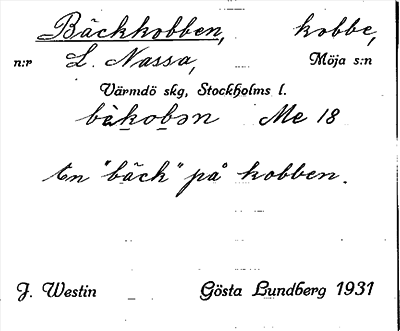 Bäckkobben, kobbe,
n:r L. Nassa, Möja s:n
Värmdö skg, Stockholms l.
bàkobən Me 18
En "bäck" på kobben.
J. Westin Gösta Lundberg 1931